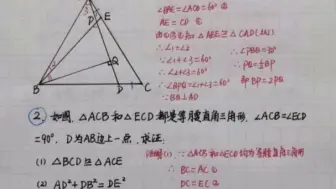 ∠BAE=∠ACD=60° ①
AE = CD ②
由①②③知 △ABE≌△CAD(SAS)
∴∠1=∠2
∵∠1+∠3=60°
∴∠2+∠3=60°
∴∠BPQ=60°
∵BQ⊥AD
∴∠PBQ=30°
∴PQ=½BP
即BP=2PQ
E
P
Q
B
D
C
② 如图, △ACB和△ECD都是等腰直角三角形, ∠ACB=∠ECD
=90°, D为AB边上一点, 求证:
(1) △BCD≌△ACE
(2) AD²+DB²=DE²
证明:(1) ∵△ACB和△ECD均为等腰直角三角形
∴ BC=AC ①
DC=EC ②